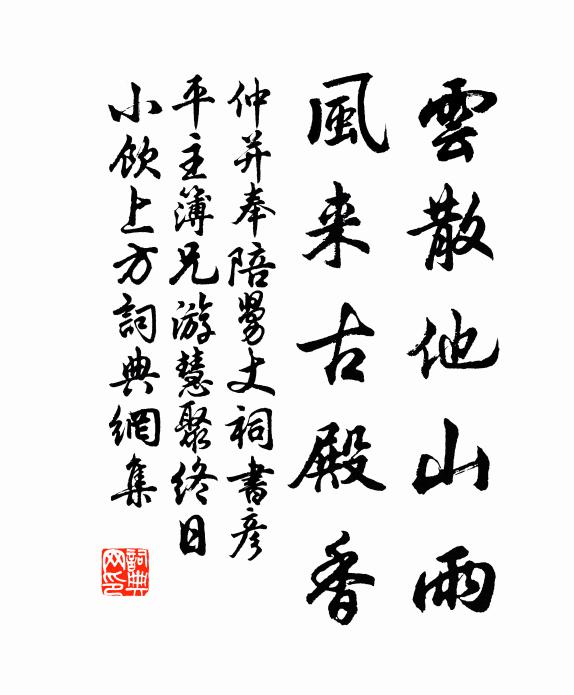 雲散他山雨
風来古殿香
仲并奉陪舅丈祠書彦
平主簿兄游慧聚終日
小飲上方詞典網集
詞典网印